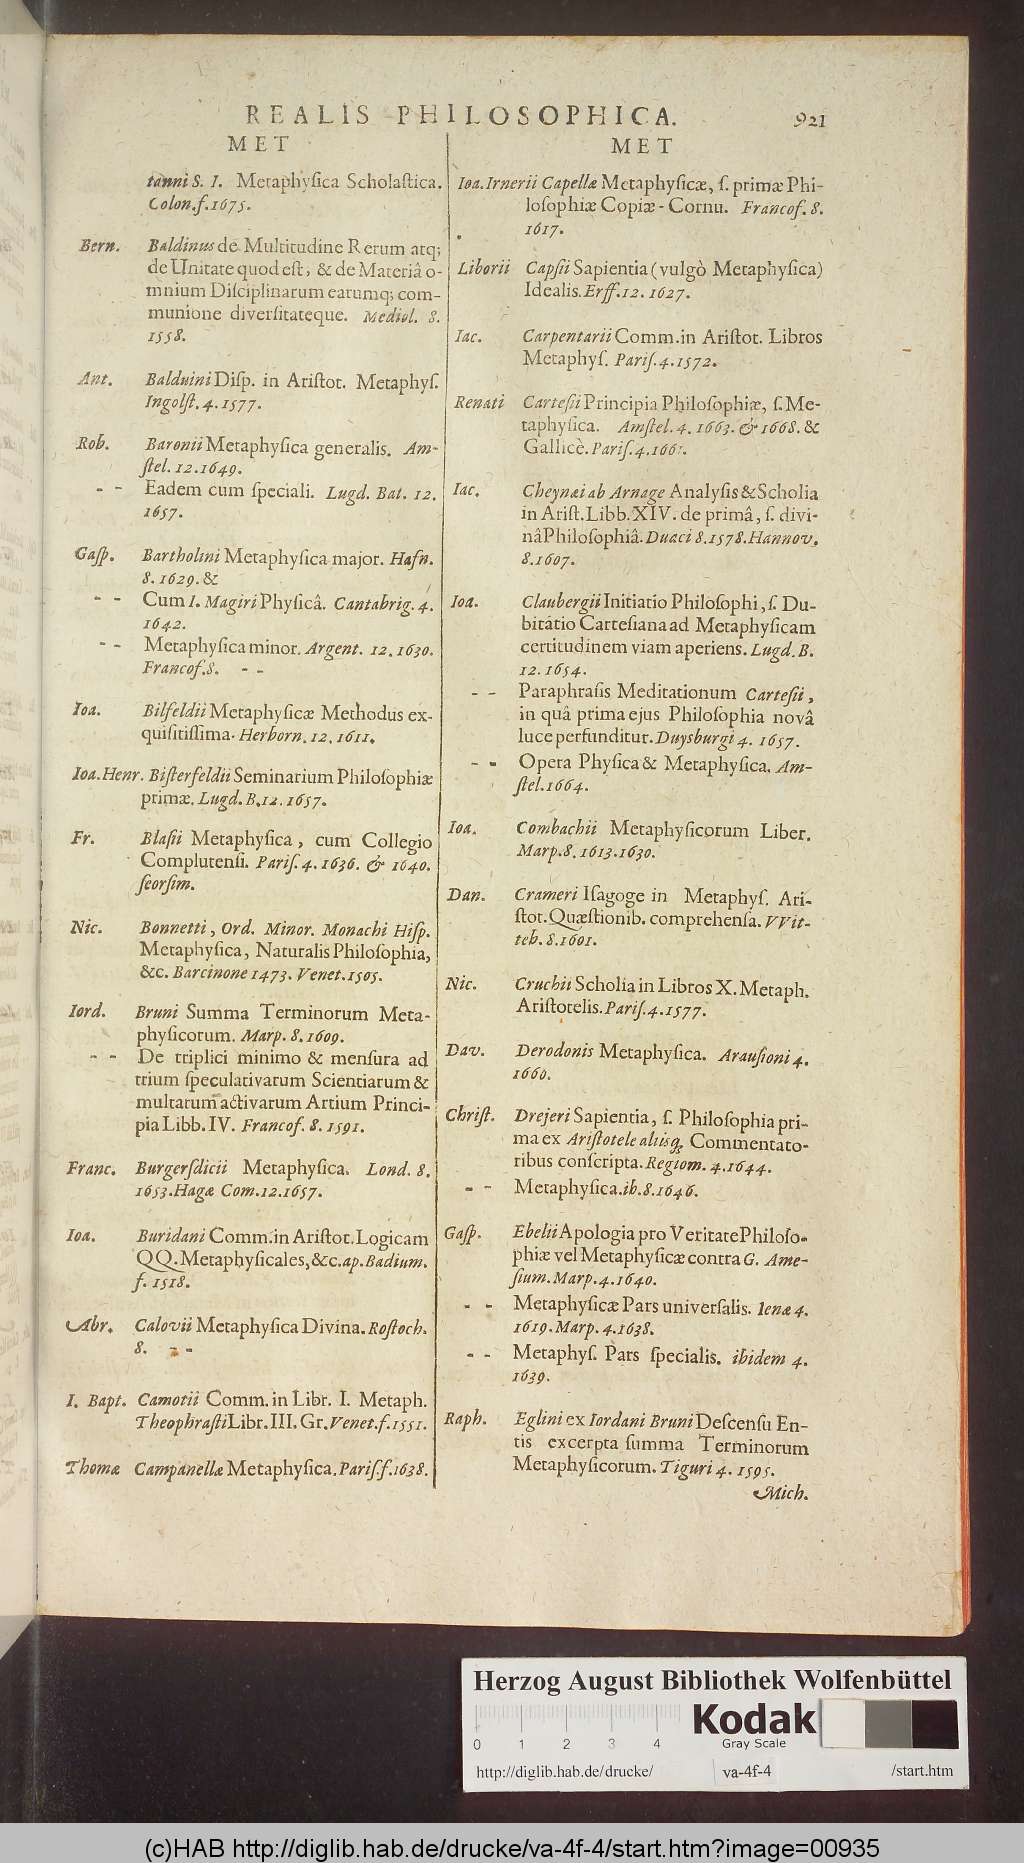 REALIS PHILOSOPHICA. 921
MET
tanni S. I. Metaphyſica Scholaſtica.
Colon. f. 1675.
Bern. Baldinus de Multitudine Rerum atq;
de Unitate quod eſt, & de Materiâ o-
mnium Diſciplinarum earumq; com-
munione diverſitateque. Mediol. 8.
1558.
Ant. Balduini Diſp. in Ariſtot. Metaphyſ.
Ingolſt. 4. 1577.
Rob. Baronii Metaphyſica generalis. Am-
ſtel. 12. 1649.
- - Eadem cum ſpeciali. Lugd. Bat. 12.
1657.
Gaſp. Bartholini Metaphyſica major. Hafn.
8. 1629. &
- - Cum I. Magiri Phyſicâ. Cantabrig. 4.
1642.
- - Metaphyſica minor. Argent. 12. 1630.
Francof. 8. - -
Ioa. Bilfeldii Metaphyſicæ Methodus ex-
quiſitiſſima. Herborn. 12. 1611.
Ioa. Henr. Biſterfeldii Seminarium Philoſophiæ
primæ. Lugd. B. 12. 1657.
Fr. Blaſii Metaphyſica, cum Collegio
Complutenſi. Pariſ. 4. 1636. & 1640.
ſeorſim.
Nic. Bonnetti, Ord. Minor. Monachi Hiſp.
Metaphyſica, Naturalis Philoſophia,
&c. Barcinone 1473. Venet. 1505.
Iord. Bruni Summa Terminorum Meta-
phyſicorum. Marp. 8. 1609.
- - De triplici minimo & menſura ad
trium ſpeculativarum Scientiarum &
multarum activarum Artium Princi-
pia Libb. IV. Francof. 8. 1591.
Franc. Burgerſdicii Metaphyſica. Lond. 8.
1653. Hagæ Com. 12. 1657.
Ioa. Buridani Comm. in Ariſtot. Logicam
QQ. Metaphyſicales, &c. ap. Badium.
f. 1518.
Abr. Calovii Metaphyſica Divina. Roſtoch.
8. - -
I. Bapt. Camotii Comm. in Libr. I. Metaph.
Theophraſti Libr. III. Gr. Venet. f. 1551.
Thomæ Campanellæ Metaphyſica. Pariſ. f. 1638.
MET
Ioa. Irnerii Capellæ Metaphyſicæ, ſ. primæ Phi-
loſophiæ Copiæ-Cornu. Francof. 8.
1617.
Liborii Capſii Sapientia (vulgò Metaphyſica)
Idealis. Erff. 12. 1627.
Iac. Carpentarii Comm. in Ariſtot. Libros
Metaphyſ. Pariſ. 4. 1572.
Renati Carteſii Principia Philoſophiæ, ſ. Me-
taphyſica. Amſtel. 4. 1663. & 1668. &
Gallicè. Pariſ. 4.
Iac. Cheynæi ab Arnage Analyſis & Scholia
in Ariſt. Libb. XIV. de primâ, ſ. divi-
nâ Philoſophiâ. Duaci 8. 1578. Hannov.
8. 1607.
Ioa. Claubergii Initiatio Philoſophi, ſ. Du-
bitatio Carteſiana ad Metaphyſicam
certitudinem viam aperiens. Lugd. B.
12. 1654.
- - Paraphraſis Meditationum Carteſii,
in quâ prima ejus Philoſophia novâ
luce perfunditur. Duysburgi 4. 1657.
- - Opera Phyſica & Metaphyſica. Am-
ſtel. 1664.
Ioa. Combachii Metaphyſicorum Liber.
Marp. 8. 1613. 1630.
Dan. Crameri Iſagoge in Metaphyſ. Ari-
ſtot. Quæſtionib. comprehenſa. VVit-
teb. 8. 1601.
Nic. Cruchii Scholia in Libros X. Metaph.
Ariſtotelis. Pariſ. 4. 1577.
Dav. Derodonis Metaphyſica. Arauſioni 4.
1660.
Chriſt. Drejeri Sapientia, ſ. Philoſophia pri-
ma ex Ariſtotele aliisq; Commentato-
ribus conſcripta. Regiom. 4. 1644.
- - Metaphyſica. ib. 8. 1646.
Gaſp. Ebelii Apologia pro Veritate Philoſo-
phiæ vel Metaphyſicæ contra G. Ame-
ſium. Marp. 4. 1640.
- - Metaphyſicæ Pars univerſalis. Ienæ 4.
1619. Marp. 4. 1638.
- - Metaphyſ. Pars ſpecialis. ibidem 4.
1639.
Raph. Eglini ex Iordani Bruni Deſcenſu En-
tis excerpta ſumma Terminorum
Metaphyſicorum. Tiguri 4. 1595.
Mich.
Herzog August Bibliothek Wolfenbüttel
0 1 2 3 4
Kodak
Gray Scale
http://diglib.hab.de/drucke/ va-4f-4 /start.htm
(c)HAB http://diglib.hab.de/drucke/va-4f-4/start.htm?image=00935